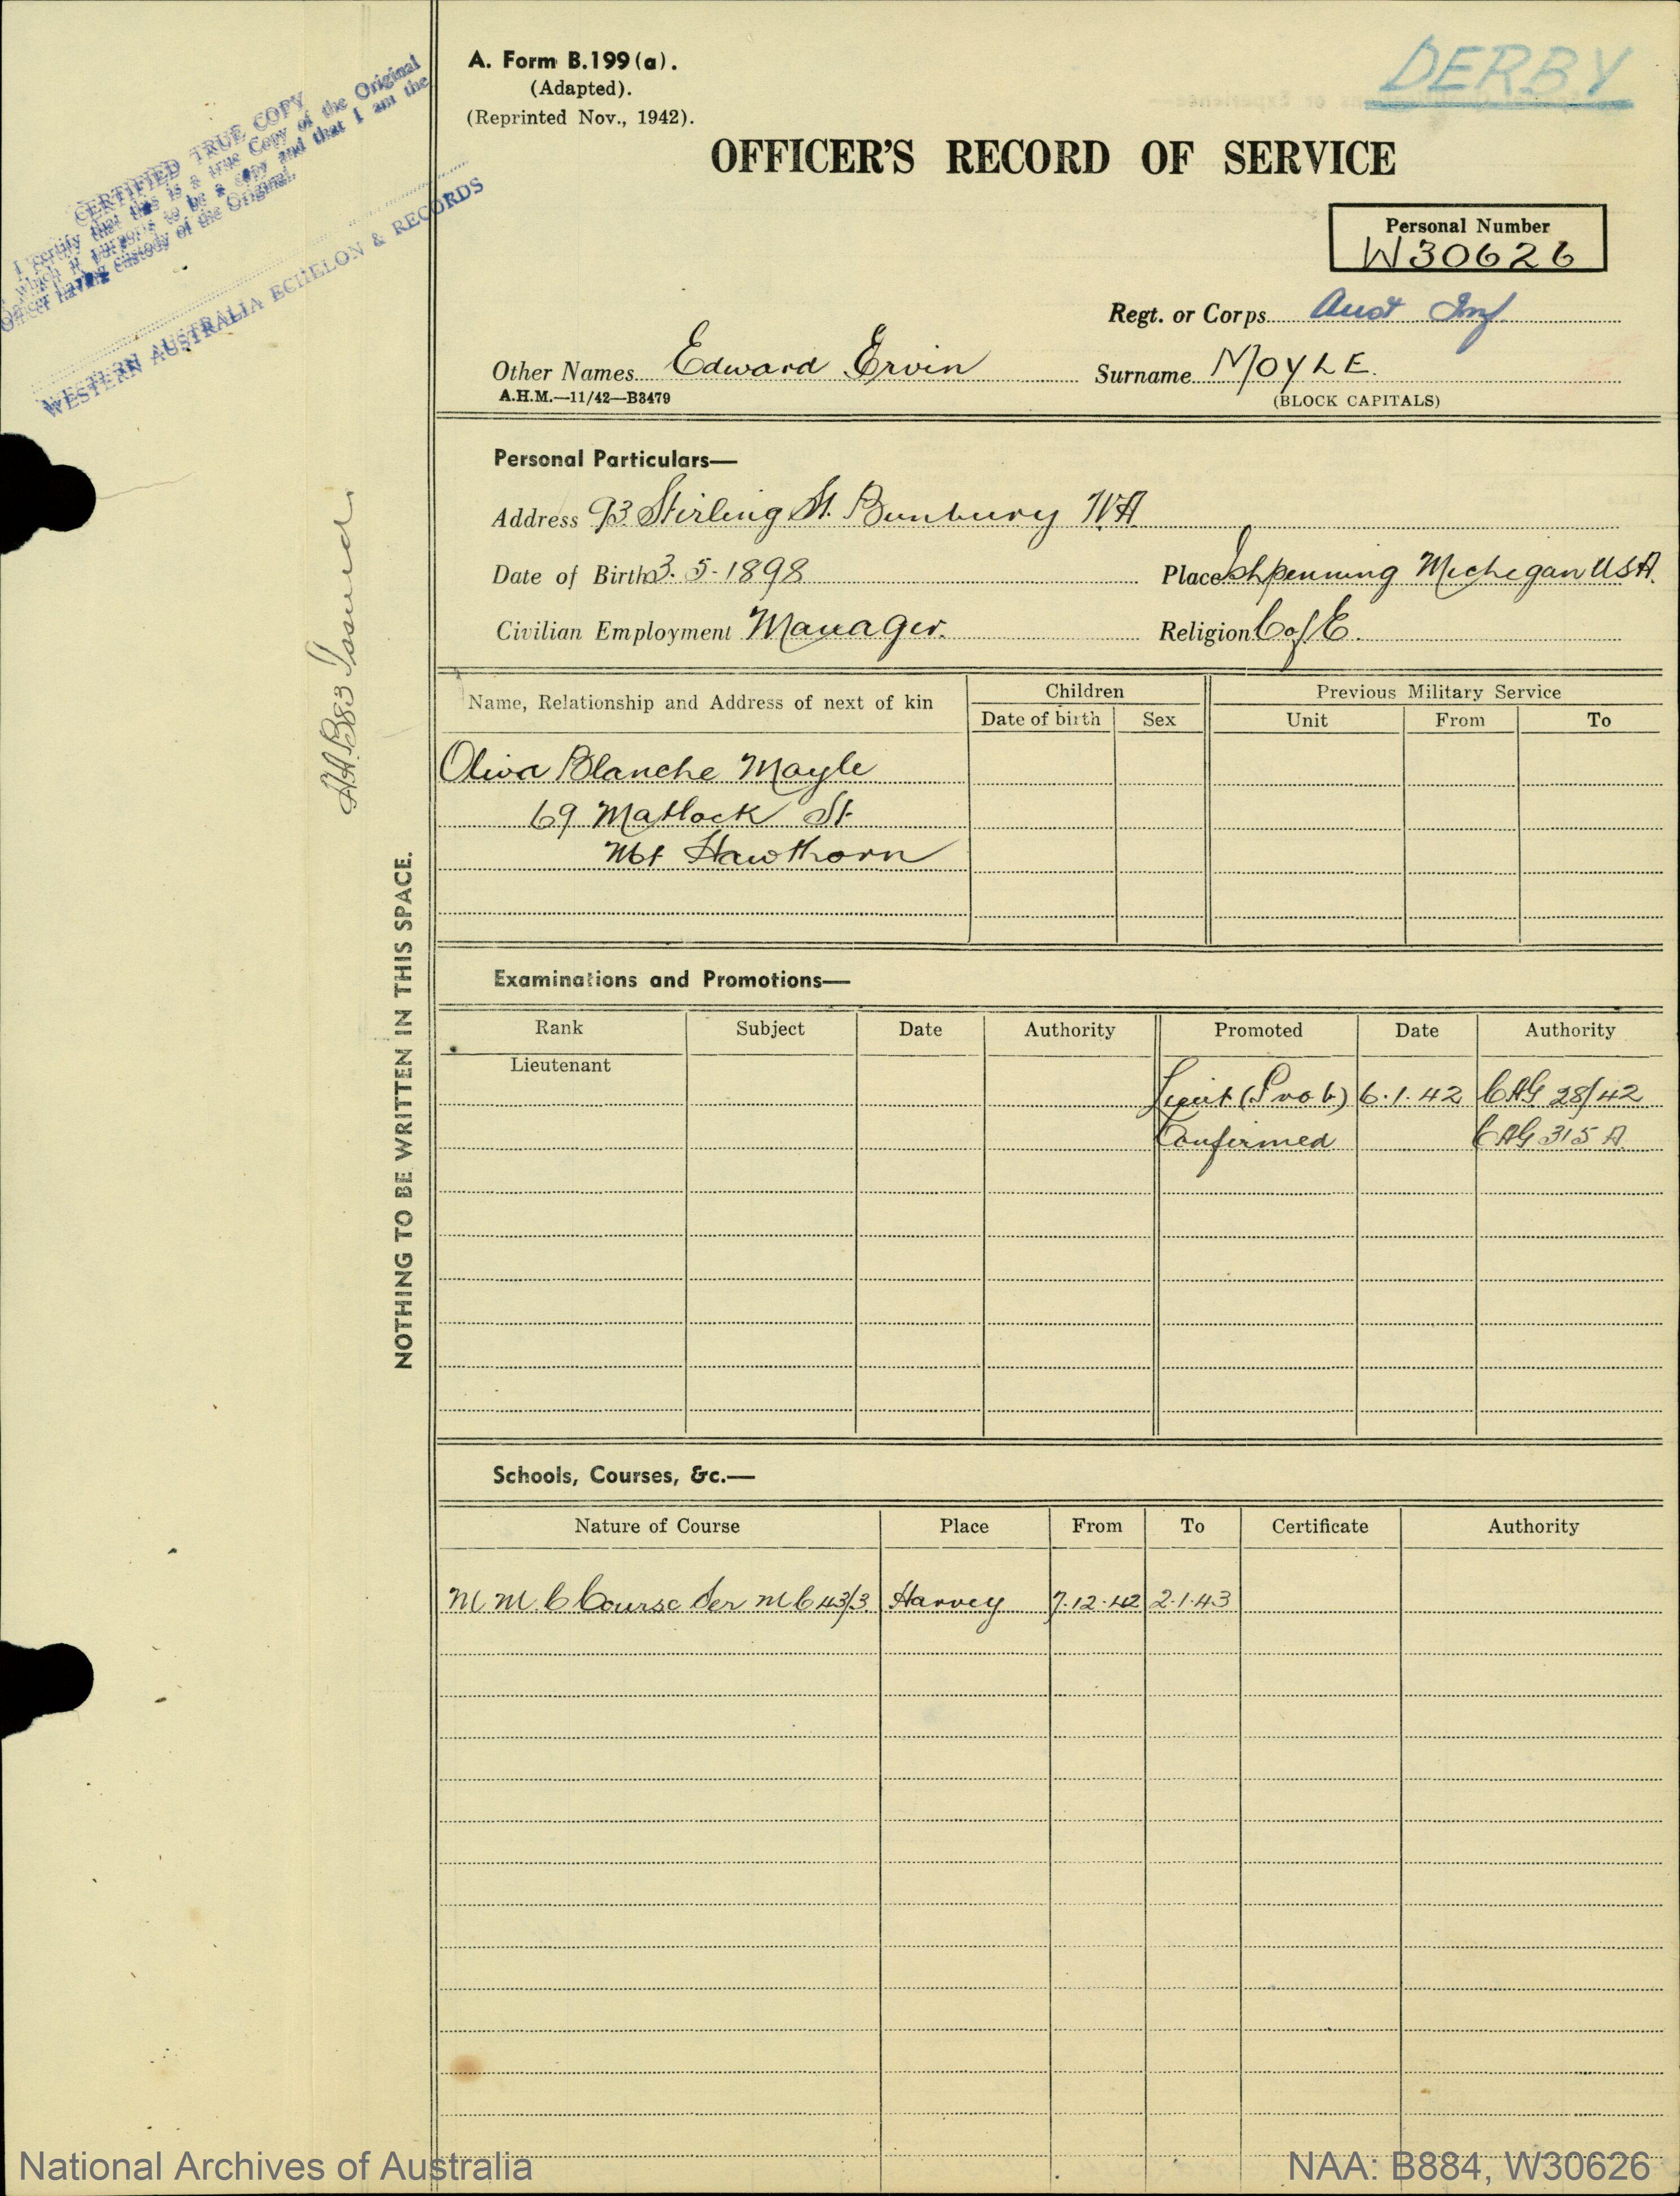 CERTIFIED TRUE COPY
I certify that this is a true Copy of the Original
which it purports to be a copy and that I am the
Officer having custody of the Original.
WESTERN AUSTRALIA ECHELON & RECORDS
A. Form B.199(a).
(Adapted).
(Reprinted Nov., 1942).
DERBY
OFFICER'S RECORD OF SERVICE
Personal Number
W30626
Regt. or Corps Aust Inf
Other Names Edward Ervin Surname MOYLE.
A.H.M.—11/42—B3479 (BLOCK CAPITALS)
Personal Particulars—
Address 93 Stirling St. Bunbury WA
Date of Birth 3.5.1898 Place Ishpenning Michegan USA.
Civilian Employment Manager. Religion C of E.
AA.B83 Issued
NOTHING TO BE WRITTEN IN THIS SPACE.
Name, Relationship and Address of next of kin Children Previous Military Service
Date of birth Sex Unit From To
Oliva Blanche Moyle
69 Matlock St
Mt Hawthorn
Examinations and Promotions—
Rank Subject Date Authority Promoted Date Authority
Lieutenant
Lieut (Prob) 6.1.42 CAG 28/42
Confirmed CAG 315 A
Schools, Courses, &c.—
Nature of Course Place From To Certificate Authority
M M.C Course Ser MC43/3 Harvey 7.12.42 2.1.43
National Archives of Australia NAA: B884, W30626